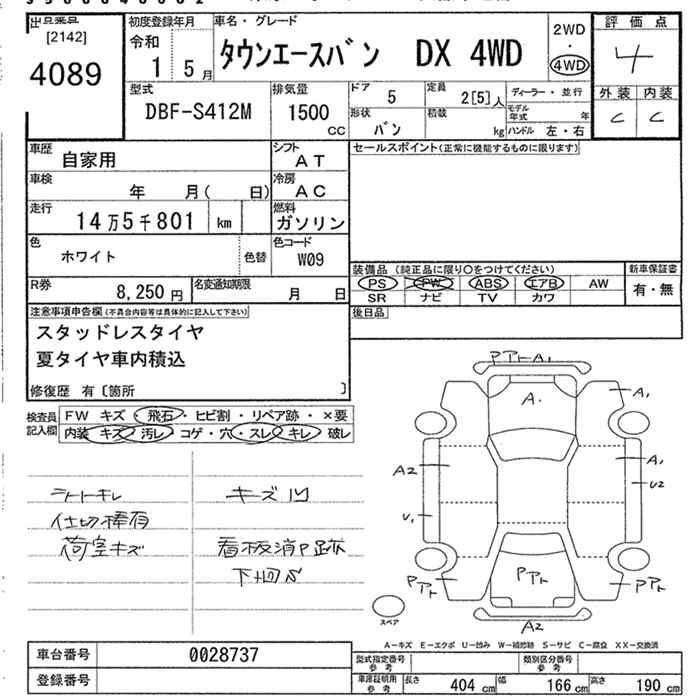 出品番号
[2142]
4089
初度登録年月
令和
1 5月
車名・グレード
タウンエースバン DX 4WD
2WD
・
4WD
評価点
4
外装 内装
C C
型式
DBF-S412M
排気量
1500
CC
ドア
5
定員
2[5]人
ディーラー・並行
形状
バン
積載
kg
モデル年式 年
ハンドル 左・右
車歴
自家用
シフト
AT
セールスポイント(正常に機能するものに限ります)
車検
年 月( 日)
冷房
AC
走行
14万5千801 km
燃料
ガソリン
色
ホワイト
色替
色コード
W09
装備品 (純正品に限り○をつけてください)
新車保証書
PS PW ABS エアB AW
有・無
SR ナビ TV カワ
R券
8,250円
名変通知期限
月 日
後日品
注意事項申告欄(不具合内容等は具体的に記入して下さい)
スタッドレスタイヤ
夏タイヤ車内積込
修復歴 有〔箇所 〕
検査員
記入欄
FW キズ・飛石・ヒビ割・リペア跡・×要
内装 キズ・汚レ・コゲ・穴・スレ・キレ・破レ
シートキレ
仕切棒有
荷室キズ
キズ凹
看板消P跡
下回S
PアトA1
A・
A1
A2
A1
U2
U1
Pアト
Pアト
Pアト
A2
スペア
A－キズ E－エクボ U－凹み W－補修跡 S－サビ C－腐食 XX－交換済
車台番号
0028737
登録番号
型式指定番号
参考
類別区分番号
参考
車庫証明用
参考
長さ 404 cm 幅 166 cm 高さ 190 cm